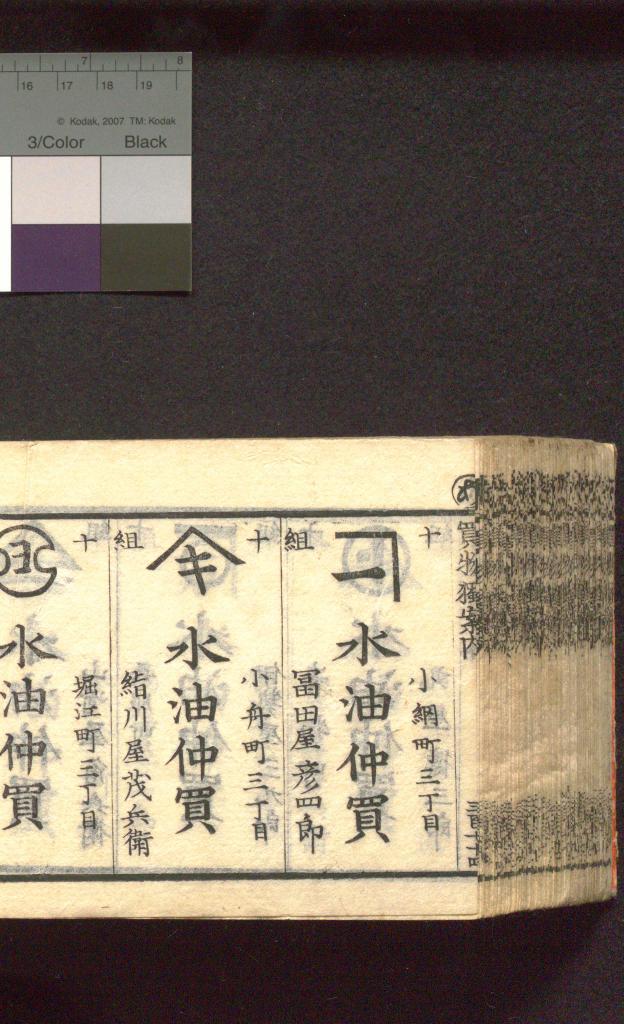 7 8
16 17 18 19
© Kodak, 2007 TM: Kodak
3/Color Black
買物獨案内
十
組
小網町三丁目
水油仲買
冨田屋彦四郎
十
組
キ
小舟町三丁目
水油仲買
結川屋茂兵衛
十
堀江町三丁目
水油仲買